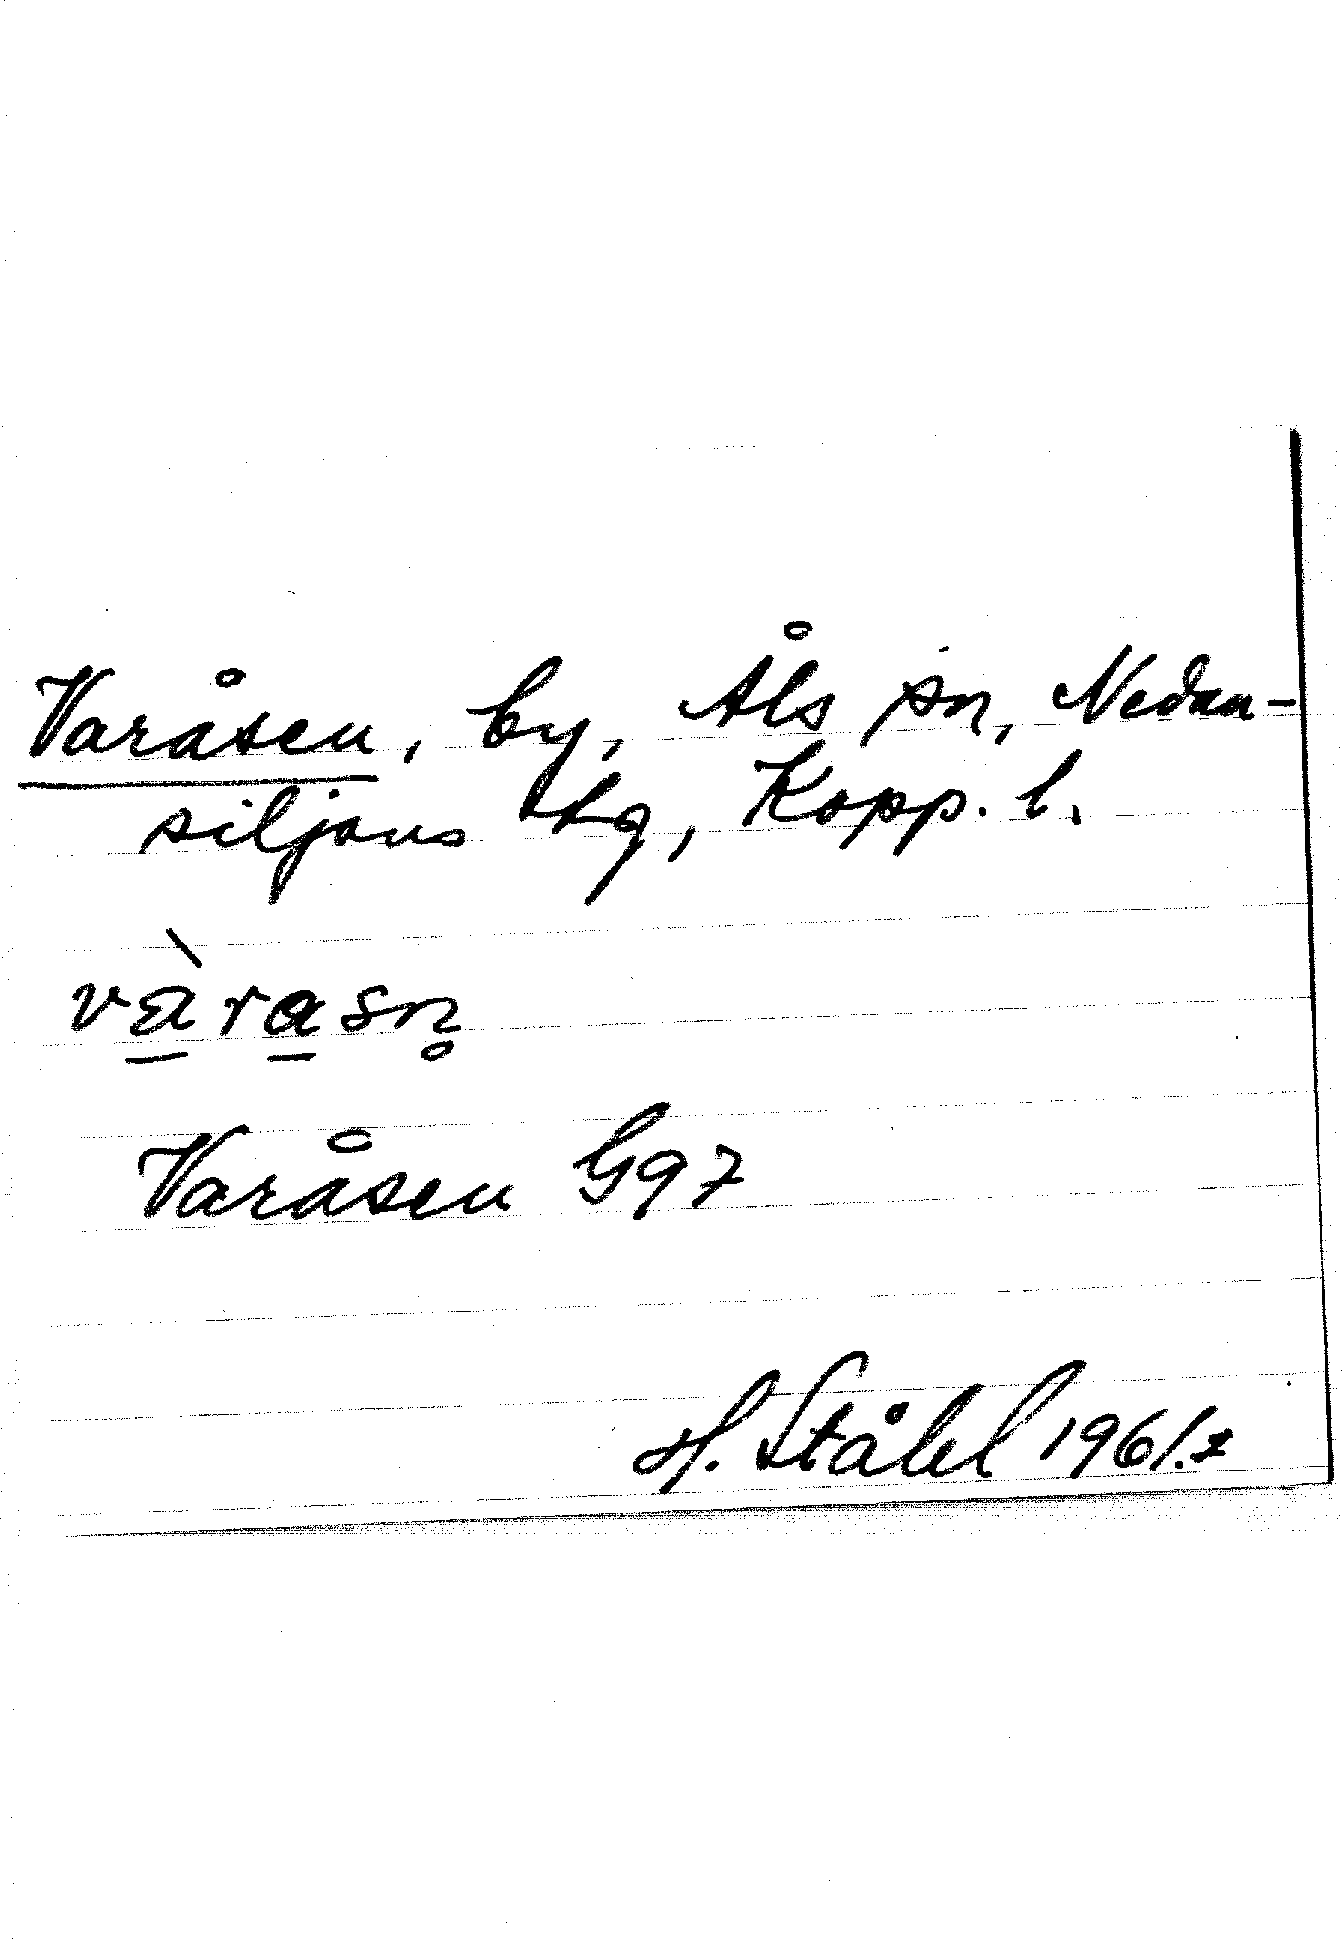 Varåsen, by, Åls sn, Nedan-
siljans tg, Kopp. l.
và̱ra̱sn̥
Varåsen G97
H. Ståhl 1961.